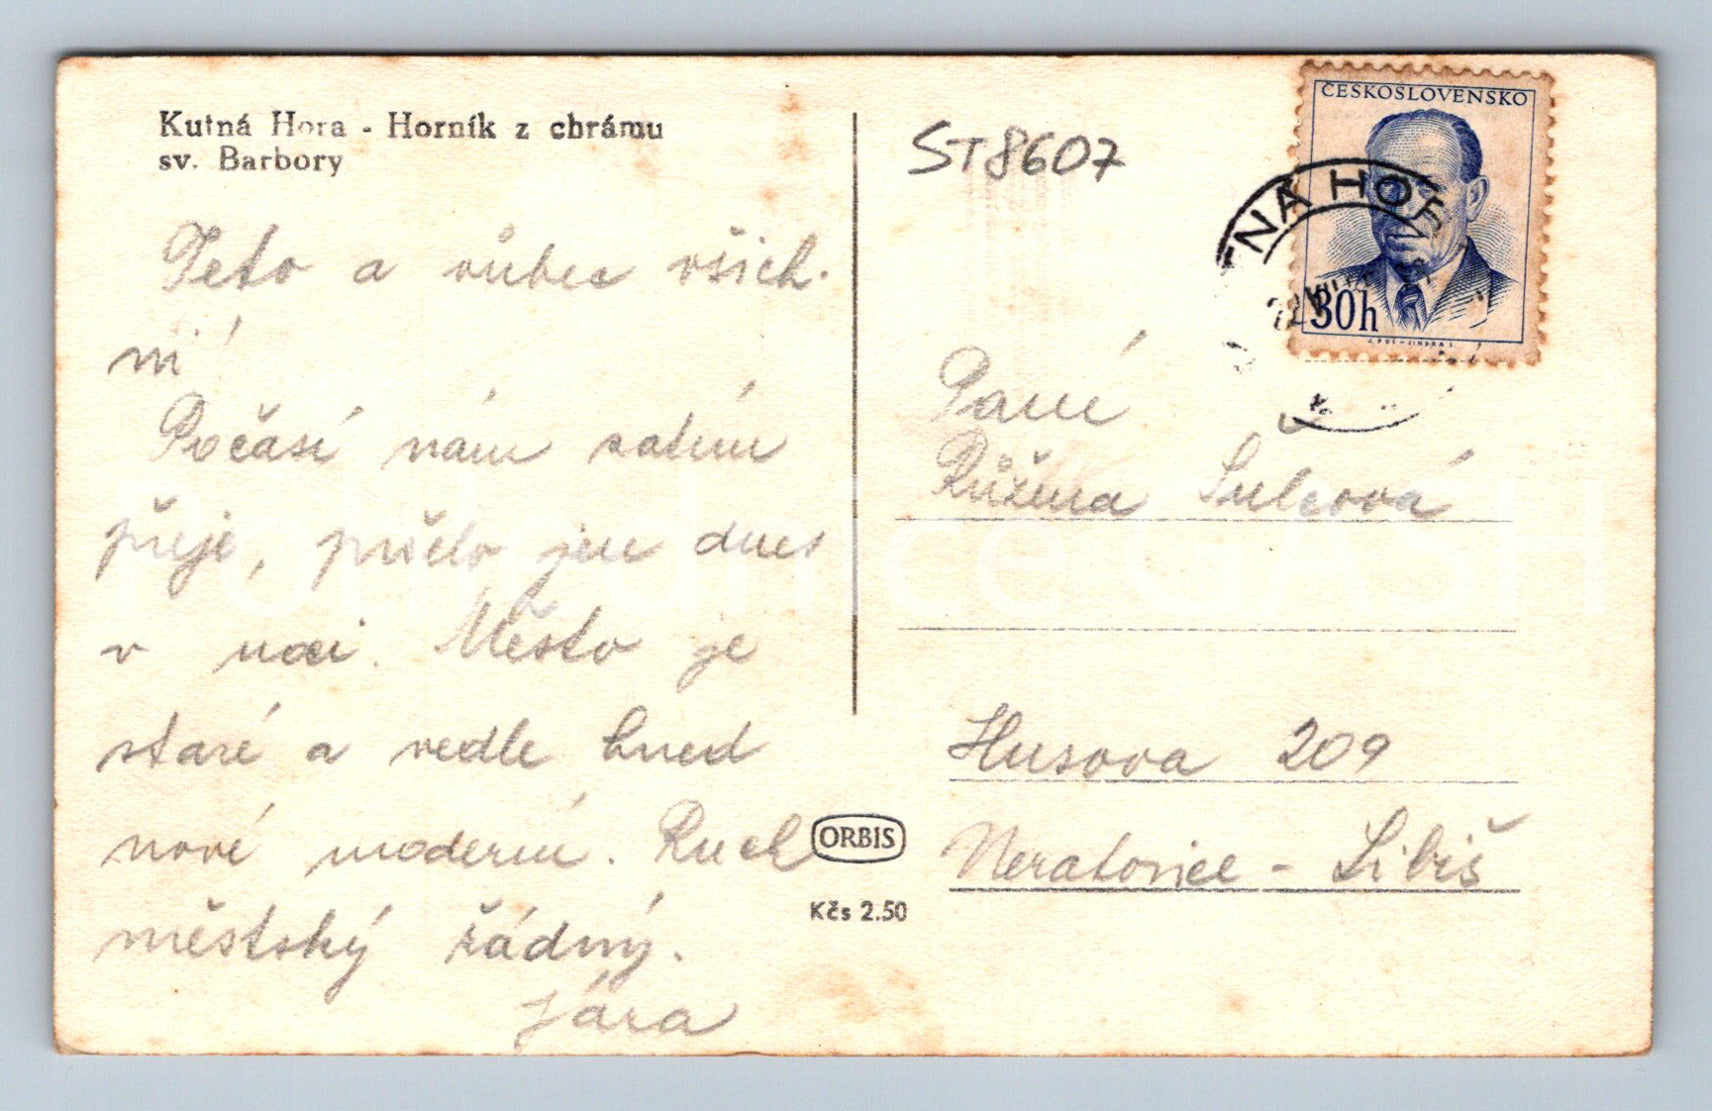 Kutná Hora - Horník z chrámu
sv. Barbory
ST8607
ČESKOSLOVENSKO
TNÁ HOR
30h
Teto a vůbec všich-
ni
Počasí nám zatím
přeje, pršelo jen dnes
v noci. Město je
staré a vedle hned
nové moderní. Ruch
městský řádný.
Jára
Paní
Růžena Šulcová
Husova 209
Neratovice - Libiš
ORBIS
Kčs 2.50
Pohlednice GASH